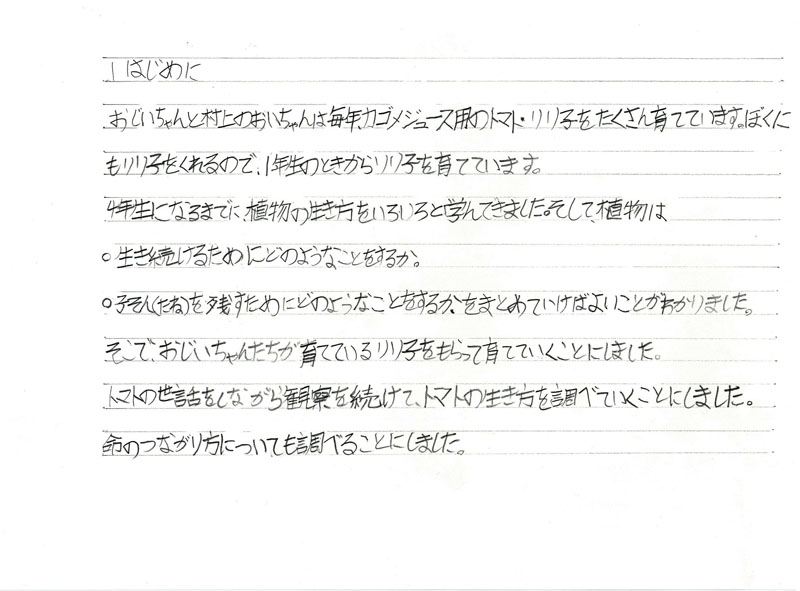 1 はじめに
おじいちゃんと村上のおいちゃんは毎年、カゴメジュース用のトマト・リリ子をたくさん育てています。ぼくに
もリリ子をくれるので、1年生のときからリリ子を育てています。
4年生になるまでに、植物の生き方をいろいろと学んできました。そして、植物は
○生き続けるためにどのようなことをするか。
○子そん(たね)を残すためにどのようなことをするか、をまとめていけばよいことがわかりました。
そこで、おじいちゃんたちが育てているリリ子をもらって育てていくことにしました。
トマトの世話をしながら観察を続けて、トマトの生き方を調べていくことにしました。
命のつながり方についても調べることにしました。